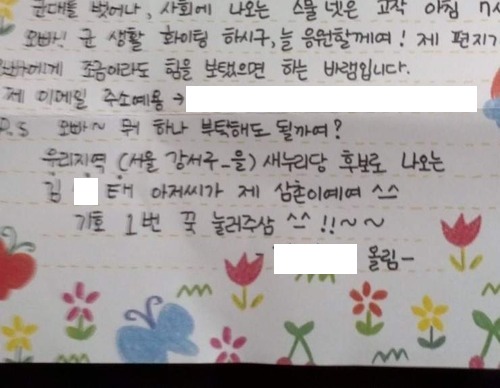 군대를 벗어나, 사회에 나오는 스물 넷은 고작 아침
오빠! 군 생활 화이팅 하시구, 늘 응원할께여! 제 편지가
오빠에게 조금이라도 힘을 보탰으면 하는 바램입니다.
제 이메일 주소예용 →
P.S 오빠~ 뭐 하나 부탁해도 될까여?
우리지역 (서울 강서구_을) 새누리당 후보로 나오는
김 태 아저씨가 제 삼촌이예여 ^^
기호 1번 꾹 눌러주삼 ^^ !!~~
- 올림-